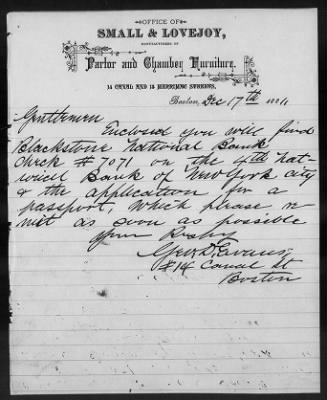 OFFICE OF
SMALL & LOVEJOY,
MANUFACTURERS OF
Parlor and Chamber Furniture,
14 CANAL AND 15 MERRIMAC STREETS,
Boston, Dec 17th 188
Gentlemen
Enclosed you will find
Blackstone National Bank
check # 7071 on the 4th Nat-
Bank of New York city
& the application for a
passport, Which please re
mit as soon as possible
Yours Resply
Geo. D. Evans,
#14 Canal St
Boston